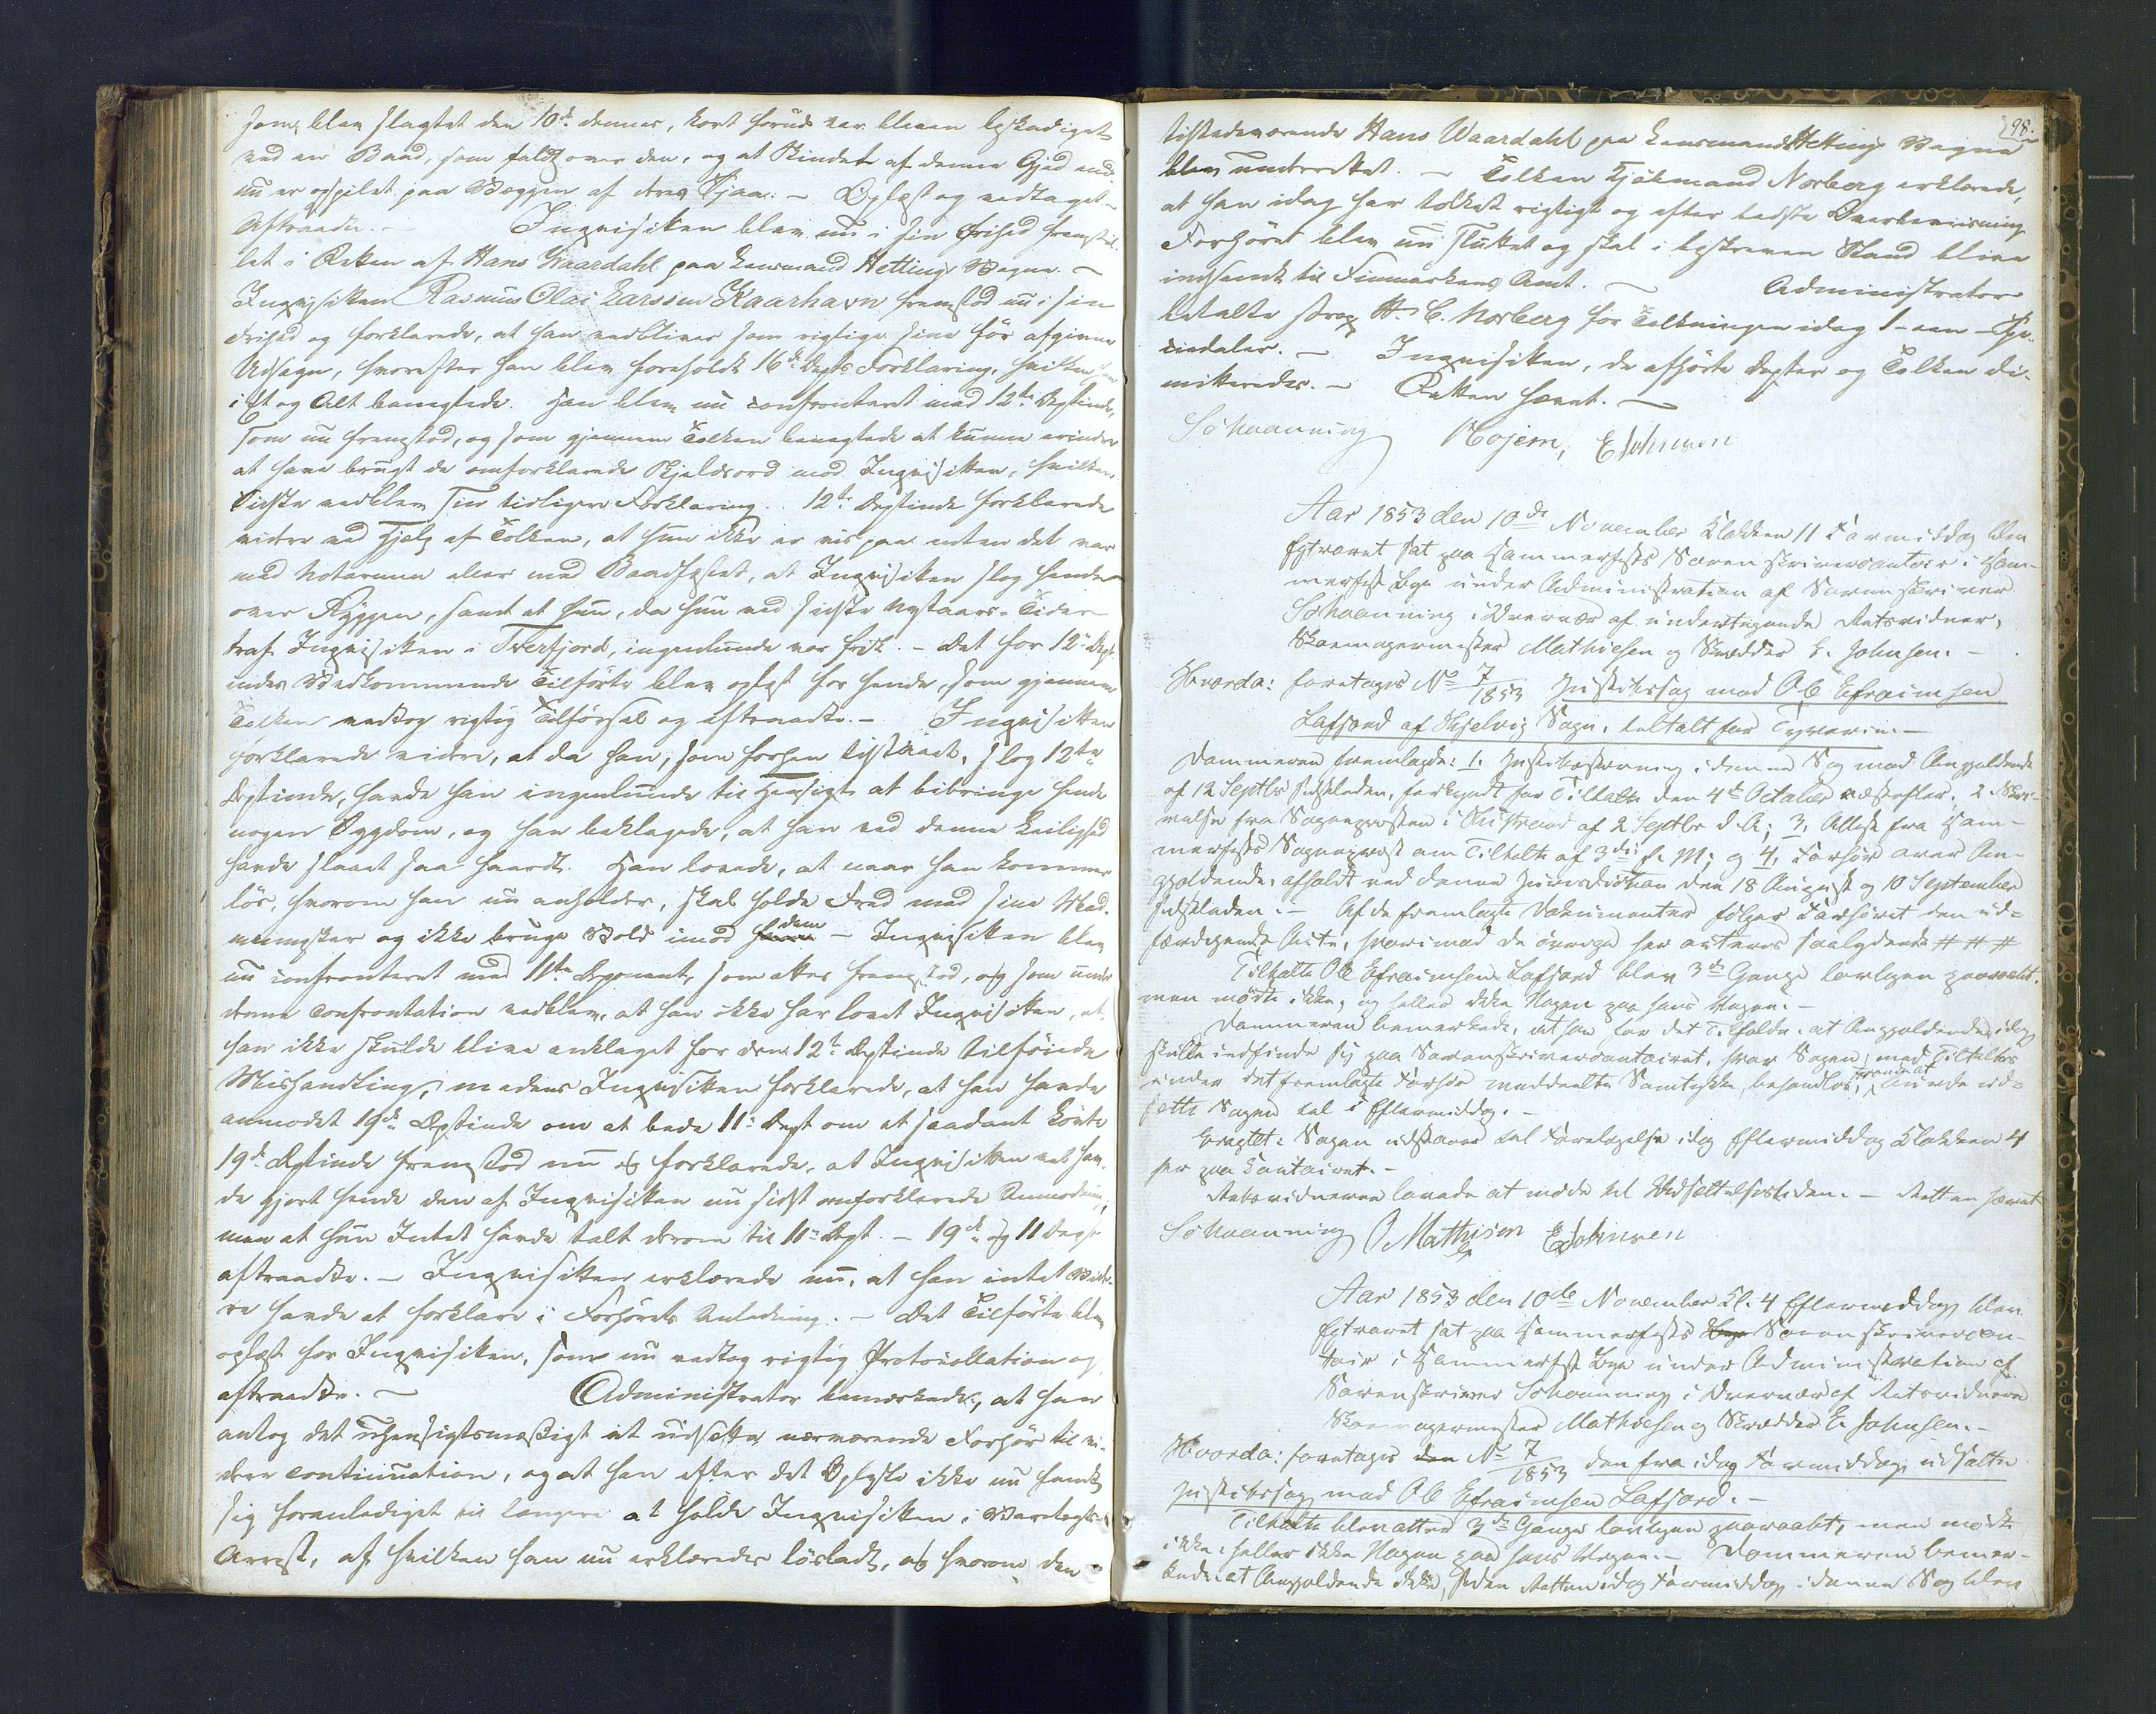 som blev slagtet den 10de dennes, kort forud var bleven beskadiget
ved en Baad, som faldt over den, og at Skindet af denne Gjed end-
nu er opspilet paa Væggen af dens Fjaa. – Oplæst og vedtaget –
Aftraadte. – Inqvisiten blev nu i sin Frihed fremstil-
let i Retten af Hans Waardahl paa Lensmand Hetting's Vegne. –
Inqvisiten Rasmus Olai Larssen Kaarhavn fremstod nu i sin
Frihed og forklarede, at han vedbliver som rigtige sine før afgivne
Udsagn, hvorefter han blev foreholdt 16de Depts Forklaring, hvilken han
i Et og Alt benegtede. Han blev nu confronteret med 12te Deptinde,
som nu fremstod, og som gjennem Tolken benegtede at kunne erindre
at have brugt de omforklarede Skjeldsord mod Inqvisiten, hvilken
Sidste vedblev sin tidligere Forklaring. 12te Deptinde forklarede
videre ved Hjelp af Tolken, at hun ikke er vis paa enten det var
med Notarmen eller med Baadshalset, at Inqvisiten slog hende
over Ryggen, samt at hun, da hun ved sidste Nytaars-Tider
traf Inqvisiten i Tverfjord, ingenlunde var frisk. – Det for 12te Dept-
inden Vedkommende Tilførte blev oplæst for hende, som gjennem
Tolken vedtog rigtig Tilførsel og aftraadte. – Inqvisiten
forklarede videre, at da han, som forhen tilstaaet, slog 12te
Deptinde, havde han ingenlunde til Hensigt at bibringe hende
nogen Sygdom, og han beklagede, at han ved denne Leilighed
havde slaaet saa haardt. Han lovede, at naar han kommer
løs, hvorom han nu anholder, skal holde Fred med sine Med-
mennesker og ikke bruge Vold imod dem – Inqvisiten blev
nu confronteret med 11te Deponent, som atter fremstod, og som under
denne Confrontation vedblev, at han ikke har lovet Inqvisiten, at
han ikke skulde blive anklaget for den 12te Deptinde tilføiede
Mishandling, medens Inqvisiten forklarede, at han havde
anmodet 19de Deptinde om at bede 11te Dept om et saadant Løvte
19de Deptinde fremstod nu og forklarede, at Inqvisiten vel hav-
de gjort hende den af Inqvisiten nu sidst omforklarede Anmodning,
men at hun Intet havde talt derom til 11te Dept. – 19de og 11 Dept
aftraadte. – Inqvisiten erklærede nu, at han intet Vide-
re havde at forklare i Forhørets Anledning. – Det Tilførte blev
oplæst for Inqvisiten, som nu vedtog rigtig Protocollation og
aftraadte. – Administrator bemærkede, at han
antog det uhensigtsmæssigt at udsætte nærværende Forhør til vi-
dere Continuation, og at han efter det Oplyste ikke nu fandt
sig foranlediget til længere at holde Inqvisiten i Varetægts-
Arrest, af hvilken han nu erklæredes løsladt, og hvorom den
98.
tilstedeværende Hans Waardahl paa Lensmand Hettings Vegne
blev underrettet. – Tolken Kjøbmand Norberg erklærede,
at han idag har tolket rigtigt og efter bedste Overbeviisning
Forhøret blev nu sluttet og skal i beskreven Stand blive
indsendt til Finmarkens Amt. – Administrator
betalte strax H. C. Norberg for Tolkningen idag 1 – een – Spe-
ciedaler. – Inqvisiten, de afhørte Depter og Tolken di-
mitteredes. – Retten hævet. –
Schaanning Kojem, E Johnsen
Aar 1853 den 10de November Klokken 11 Formiddag blev
Extraret sat paa Hammerfests Sorenskrivercontoir i Ham-
merfest Bye under Administration af Sorenskriver
Schaanning i Overvær af undertegnede Retsvidner,
Skomagermester Mathiesen og Skrædder E. Johnsen. –
Hvorda: foretages No 7/1853 Justitssag mod Ole Efraimsen
Lafjord af Kjelvig Sogn, tiltalt for Tyverie. –
Dommeren fremlagde: 1. Justitsstevning i denne Sag mod Angjeldende
af 12 Septbr sidstleden, forkyndt for Tiltalte den 4de October næstefter. 2. Skri-
velse fra Sognepresten i Kistrand af 2 Septbr d. A; 3. Attest fra Ham-
merfests Sogneprest om Tiltalte af 3de f. M; og 4, Forhør over An-
gjeldende, afholdt ved denne Jurisdiction den 18 August og 10 September
sidstleden. – Af de fremlagte Dokumenter følger Forhøret den ud-
færdigende Acte, hvorimod de øvrige her acteres saalydende # # #
Tiltalte Ole Efraimsen Lafjord blev 3de Gange lovligen paaraabt,
men mødte ikke, og heller ikke Nogen paa hans Vegne. –
Dommeren bemærkede, at han for det Tilfælde, at Angjeldende idag
skulde indfinde sig paa Sorenskrivercontoiret, hvor Sagen, med Tiltaltes
under det fremlagte Forhør meddeelte Samtykke, behandles, fandt at burde ud-
sætte Sagen til i Eftermiddag. –
Eragtet: Sagen udstaaer til Foretagelse idag Eftermiddag Klokken 4
her paa Contoiret. –
Retsvidnerne lovede at møde til Udsættelsestiden. – Retten hævet
Schaanning O Mathisen E Johnsen
Aar 1853 den 10de November Kl. 4 Eftermiddag blev
Extraret sat paa Hammerfests Sorenskrivercon-
toir i Hammerfest Bye under Administration af
Sorenskriver Schaanning i Overvær af Retsvidnerne
Skomagermester Mathiesen og Skrædder E. Johnsen. –
Hvorda: foretages den No 7/1853 den fra idag Formiddag udsatte
Justitssag mod Ole Efraimsen Lafjord. –
Tiltalte blev atter 3de Gange lovligen paaraabt, men mødte
ikke, heller ikke Nogen paa hans Vegne. – Dommeren bemær-
kede: at Angjeldende ikke, siden Retten idag Formiddag i denne Sag blev